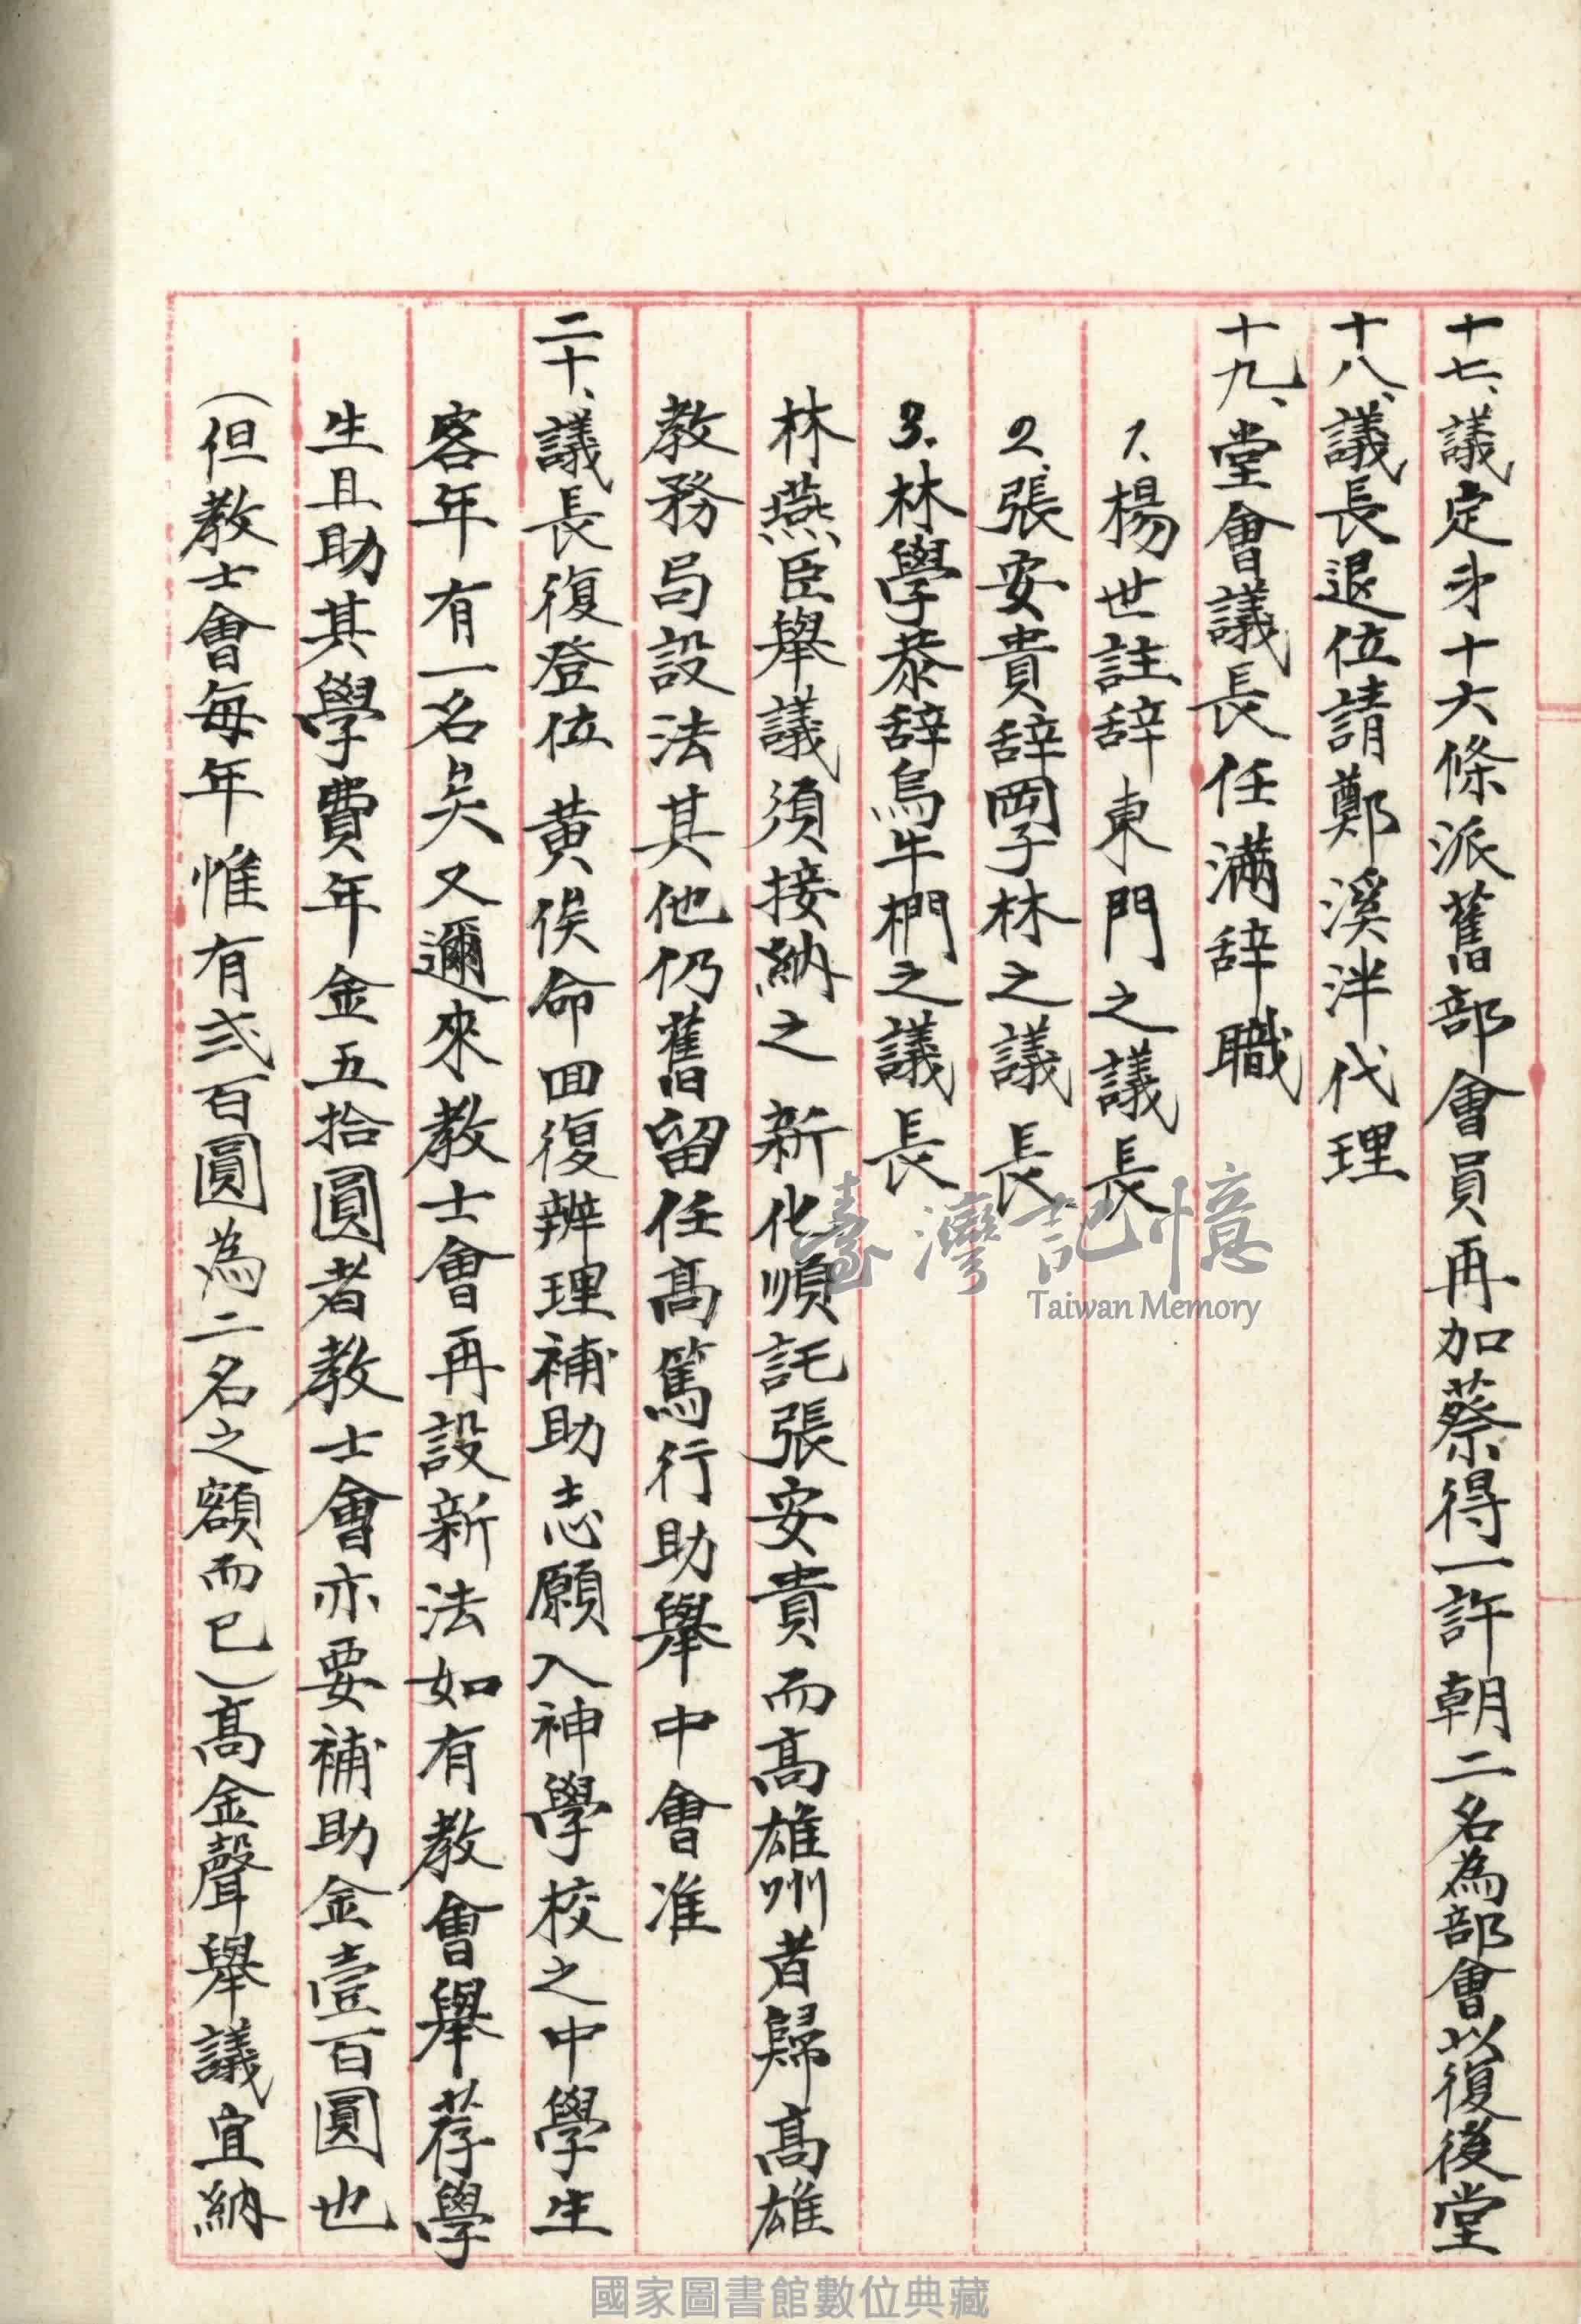 十七、議定㐧十六條派舊部會員再加蔡得一許朝二名為部會以復後堂
十八、議長退位請鄭溪泮代理
十九、堂會議長任滿辞職
1、楊世註辞東門之議長
2、張安貴辞岡子林之議長
3.林學恭辞烏牛椚之議長
林燕臣舉議須接納之 新化順託張安貴而高雄州者歸高雄
教務局設法其他仍舊留任高篤行助舉中會准
二十、議長復登位 黃俟命囬復辦理補助志願入神學校之中學生
客年有一名矣又邇來教士會再設新法如有教會舉荐學
生且助其學費年金五拾圓者教士會亦要補助金壹百圓也
（但教士會每年惟有弍百圓為二名之額而已）高金聲舉議宜納
臺灣記憶
Taiwan Memory
國家圖書館數位典藏